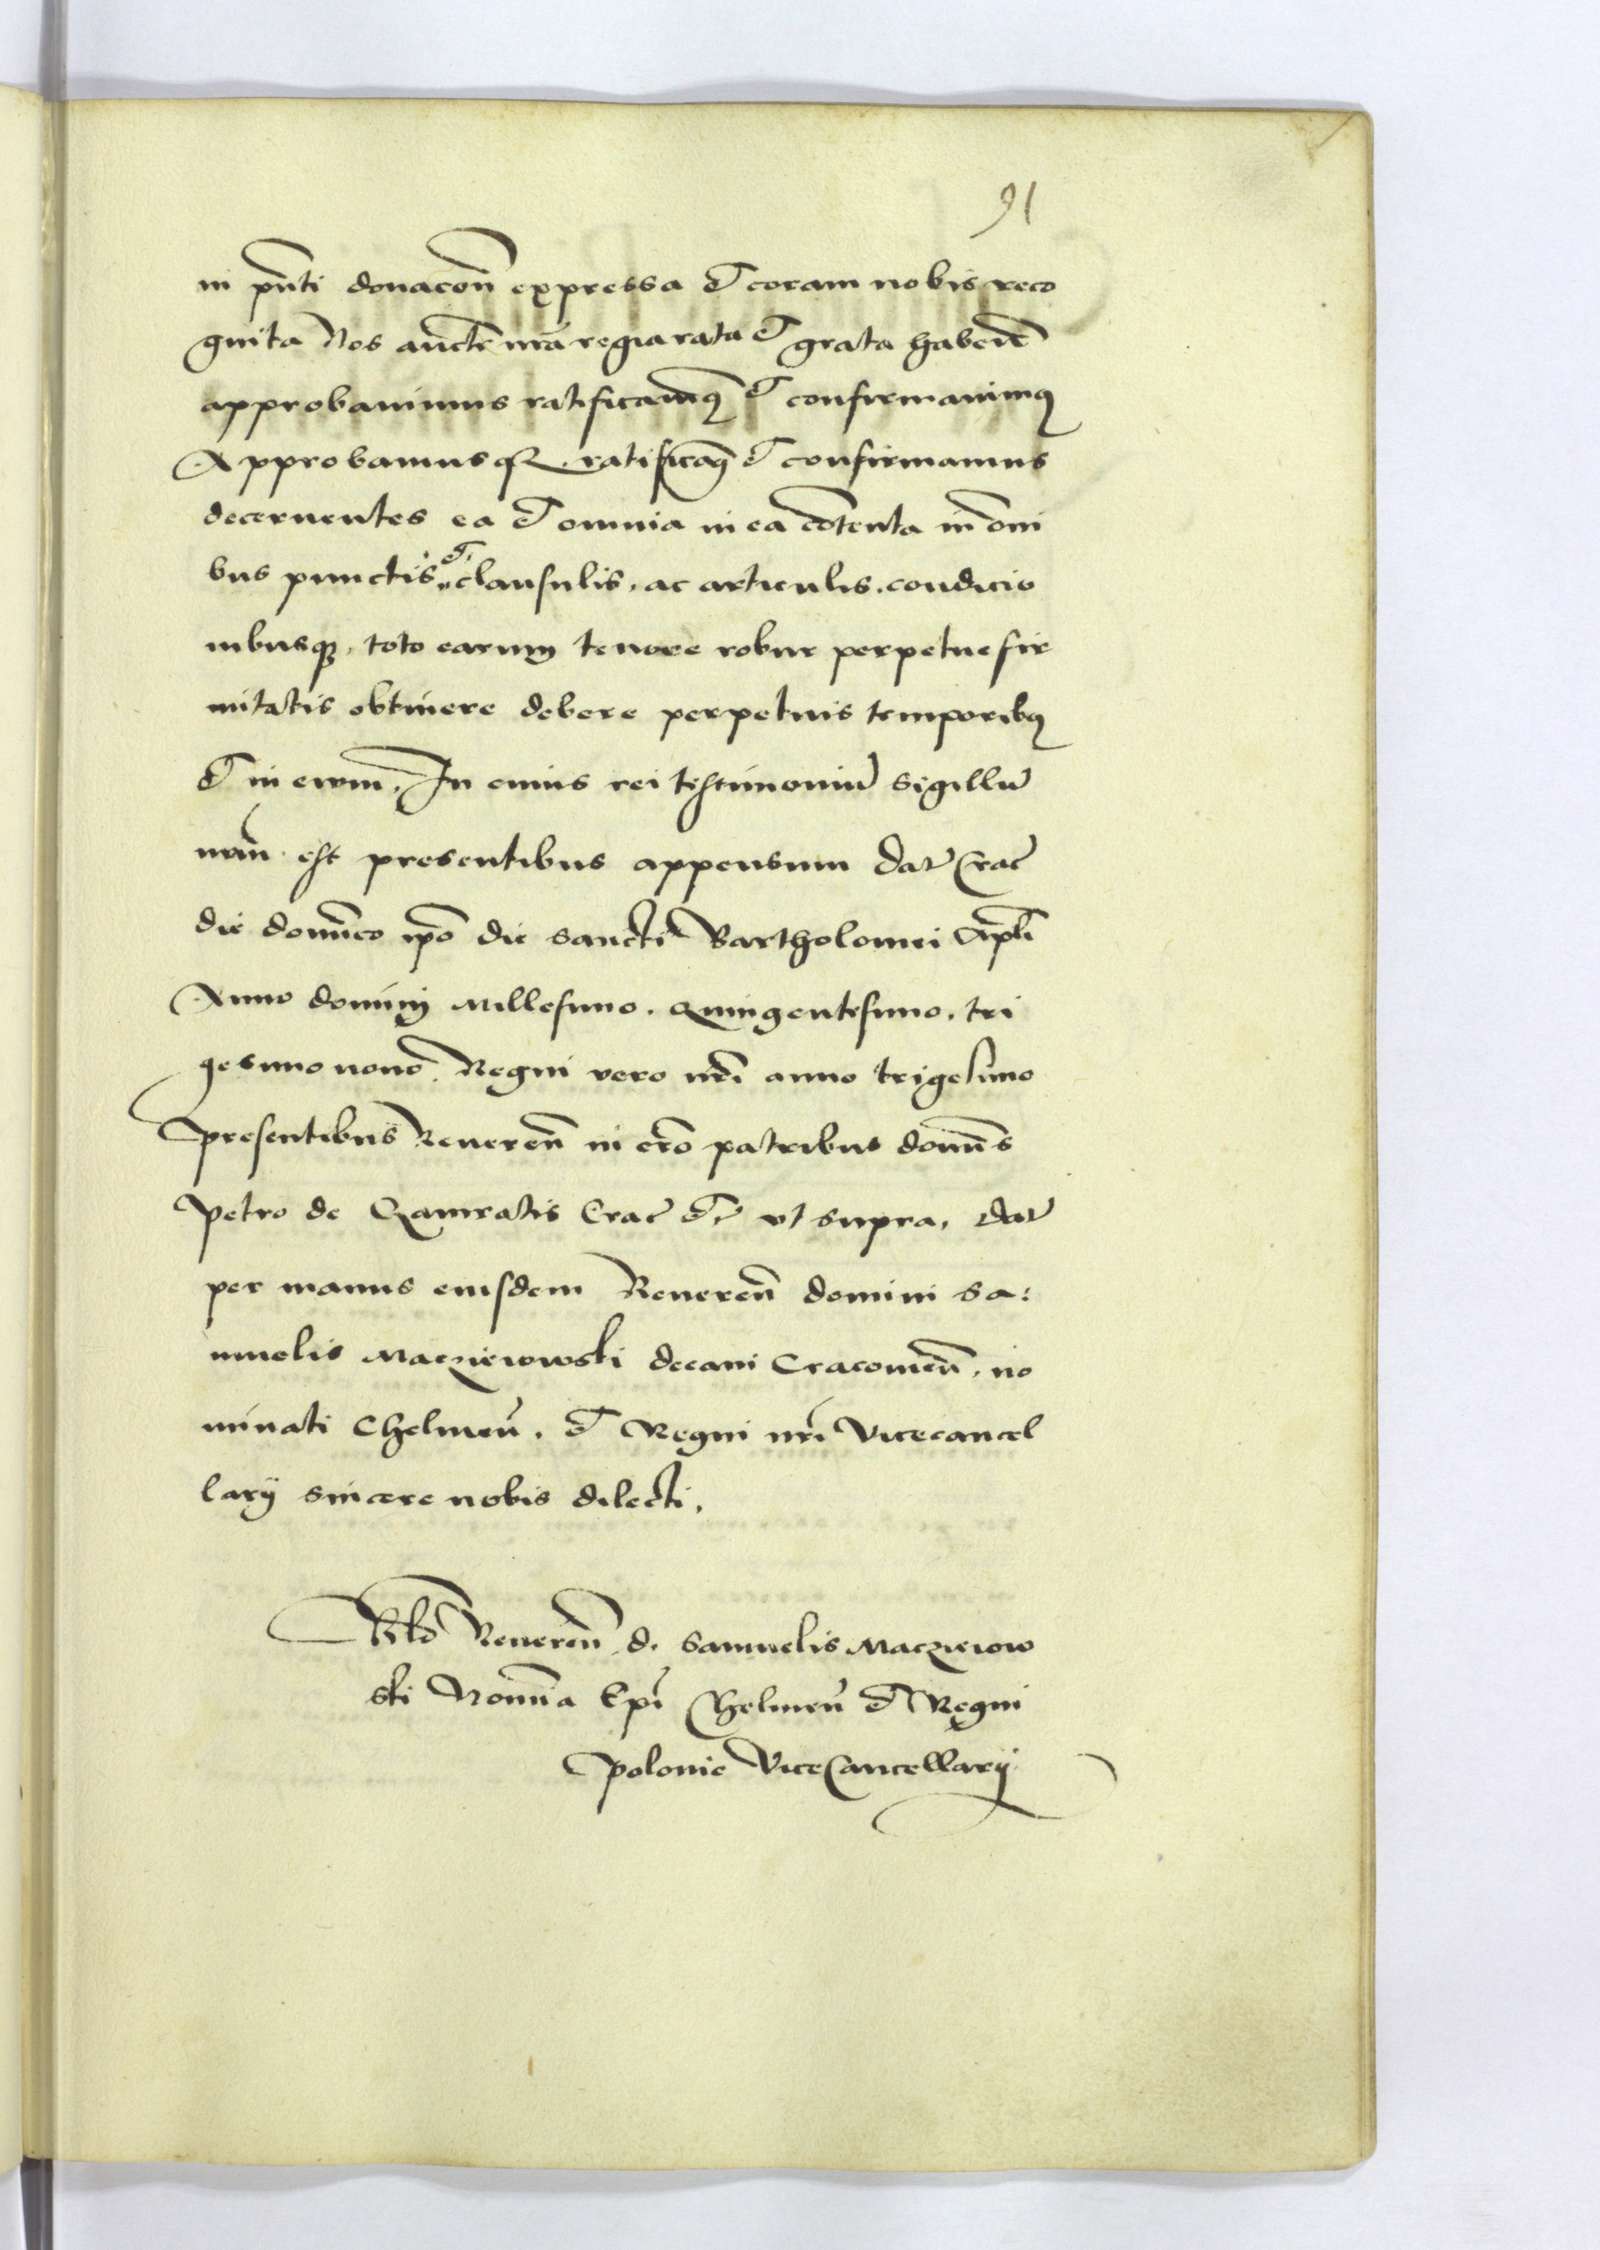 91
in pñti donacoñ expressa et coram nobis reco
gnita Nos auctte nrã regia rata et grata habeñ
approbavimus ratificamq₃ et confirmavimq₃
Approbamusq₃ ratificaq₃ et confirmamus
decernentes ea et omnia in ea cõtenta in õni
bus punctis et clausulis, ac articulis. condicio
nibusq₃, toto earum tenore robur perpetue fir
mitatis obtinere debere perpetuis temporibq₃
et in evum, In cuius rei testimoniũ sigillũ
nrm̃ est presentibus appensum Dat Crac̃
die dominĩco ip̃o die sancti Bartholomei Apl̃i
Anno dominij Millesimo. Quingentesimo. tri
gesimo nono. Regni vero nr̃i anno trigesimo
presentibus Reuereñ in cr̃o patribus domĩs
Petro de Gamratis Crac̃ etc̃ vt supra, Dat
per manus eiusdem Reuereñ domini Sa:
muelis Maczieiowski decani Cracovieñ, no
minati Chelmeñ. et Regni nr̃i Vicecancel
larij sincere nobis dilecti.
Rlõ Reuereñ d. Samuelis Maczieiow
ski Nomĩa Epĩ Chelmeñ et Regni
Polonie ViceCancellarij